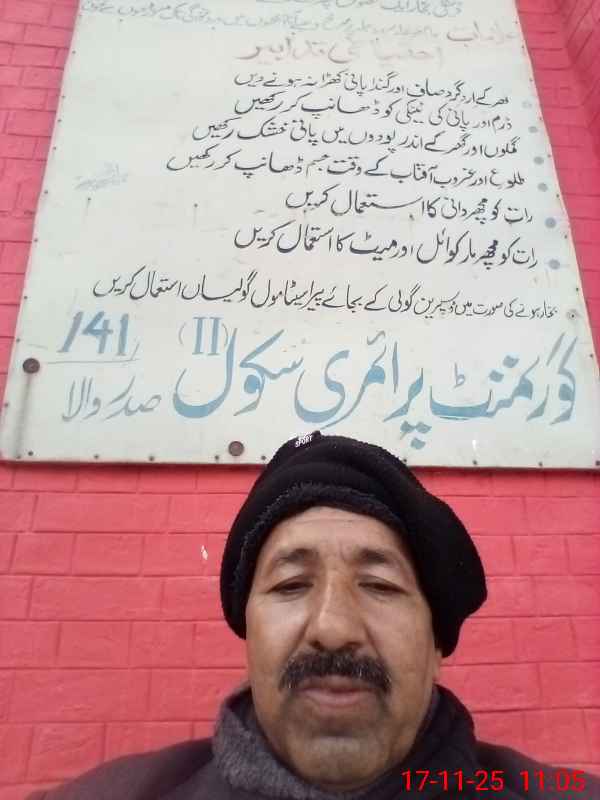 علامات
احتیاطی تدابیر
گھر کے اردگرد صاف اور گندا پانی کھڑا نہ ہونے دیں
ڈرم اور پانی کی ٹینکی کو ڈھانپ کر رکھیں
گملوں اور گھر کے اندر پودوں میں پانی خشک رکھیں
طلوع اور غروب آفتاب کے وقت جسم ڈھانپ کر رکھیں
رات کو مچھر دانی کا استعمال کریں
رات کو مچھر مار کوائل اور میٹ کا استعمال کریں
بخار ہونے کی صورت میں ڈسپرین گولی کے بجائے پیراسیٹامول گولیاں استعمال کریں
گورنمنٹ پرائمری سکول (II) 141
صدر والا
SPORT
17-11-25 11:05